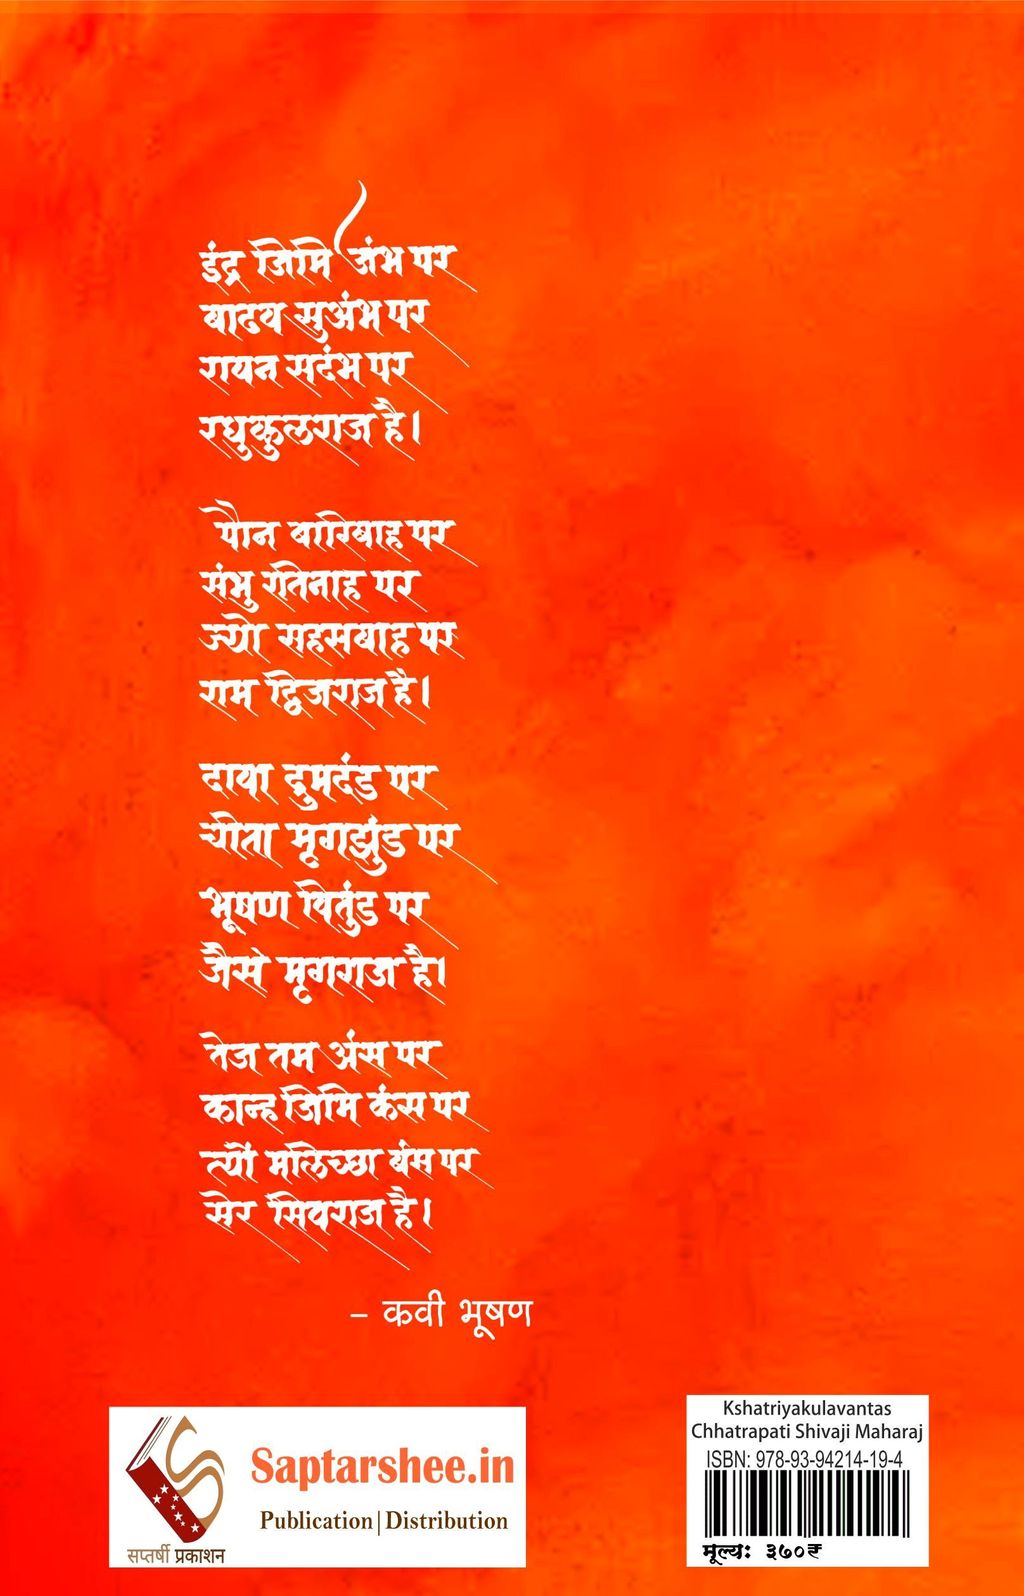 इंद्र जिमि जंभ पर
बाढव सुअंभ पर
रावन सदंभ पर
रघुकुलराज है।
पौन बारिबाह पर
संभु रतिनाह पर
ज्यो सहसबाह पर
राम द्विजराज है।
दावा द्रुमदंड पर
चीता मृगझुंड पर
भूषण वितुंड पर
जैसे मृगराज है।
तेज तम अंस पर
कान्ह जिमि कंस पर
त्यों मलिच्छ बंस पर
सेर सिवराज है।
– कवी भूषण
सप्तर्षी प्रकाशन
Saptarshee.in
Publication | Distribution
Kshatriyakulavantas
Chhatrapati Shivaji Maharaj
ISBN: 978-93-94214-19-4
मूल्य: ३७०₹